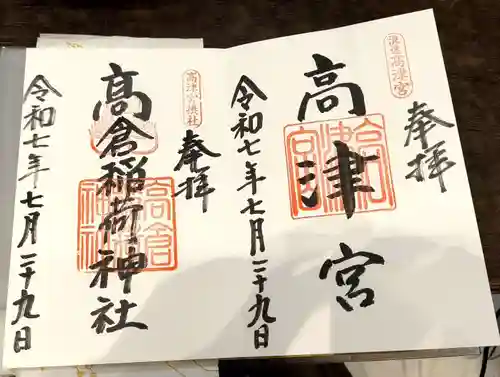 奉拝
浪速高津宮
高津宮
高津宮
令和七年七月二十九日
奉拝
高津宮摂社
高倉稲荷神社
高倉稲荷神社
令和七年七月二十九日